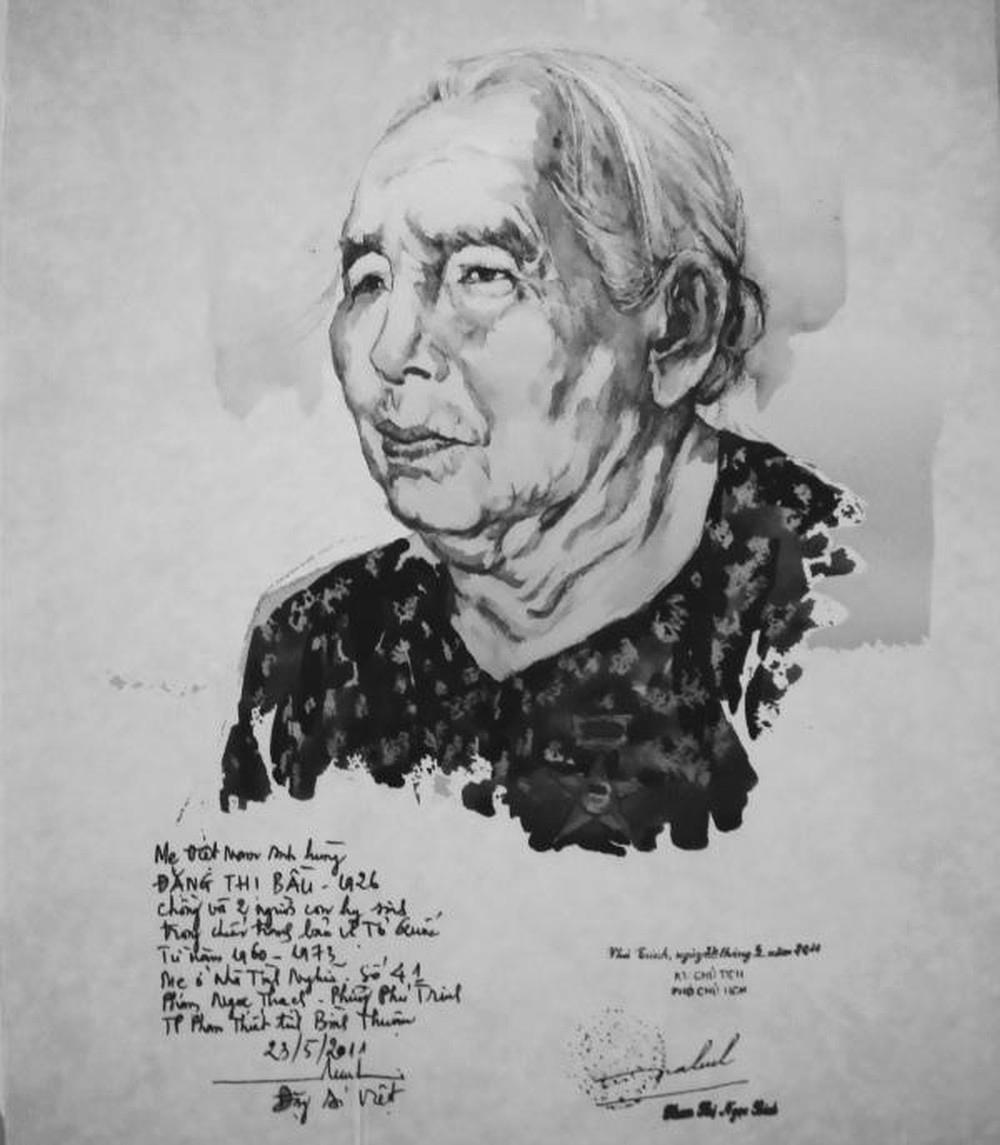 Mẹ Việt Nam Anh hùng
ĐẶNG THỊ BẦU - 1926
chồng và 2 người con hy sinh
trong chiến tranh bảo vệ Tổ Quốc
Từ năm 1960 - 1973
Mẹ ở Nhà Tình Nghĩa. Số 41
Phạm Ngọc Thạch - Phường Phú Trinh
TP Phan Thiết tỉnh Bình Thuận
23/5/2011
Đặng Ái Việt
Phú Trinh, ngày 23 tháng 5 năm 2011
KT. CHỦ TỊCH
PHÓ CHỦ TỊCH
Thị Ngọc